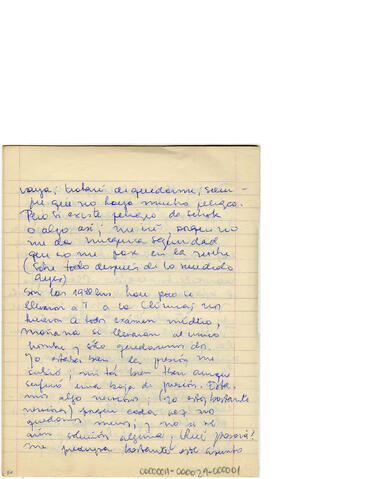 vaya; trataré de quedarme, siem-
pre que no haya mucho peligro.
Pero si existe peligro de
o algo así; me iré, porque no
me da ninguna seguridad
que no me pax en la noche
(Sobre todo después de lo sucedido
ayer)
Son las hace poco se
llevaron a 7 a la Clínica; nos
hicieron a todos exámen médico,
mañana se llevaran al único
hombre y sólo quedamos dos.
Yo estaba bien la presión me
subió; está bien aunque
sufrió una baja de presión. Esta
mos algo nerviosos; (yo estoy bastante
nerviosa) porque cada vez
quedamos menos, y no si ve
aún solución alguna; ¿Qué pasará?
Me preocupa bastante este asunto
0000011-000029-000001